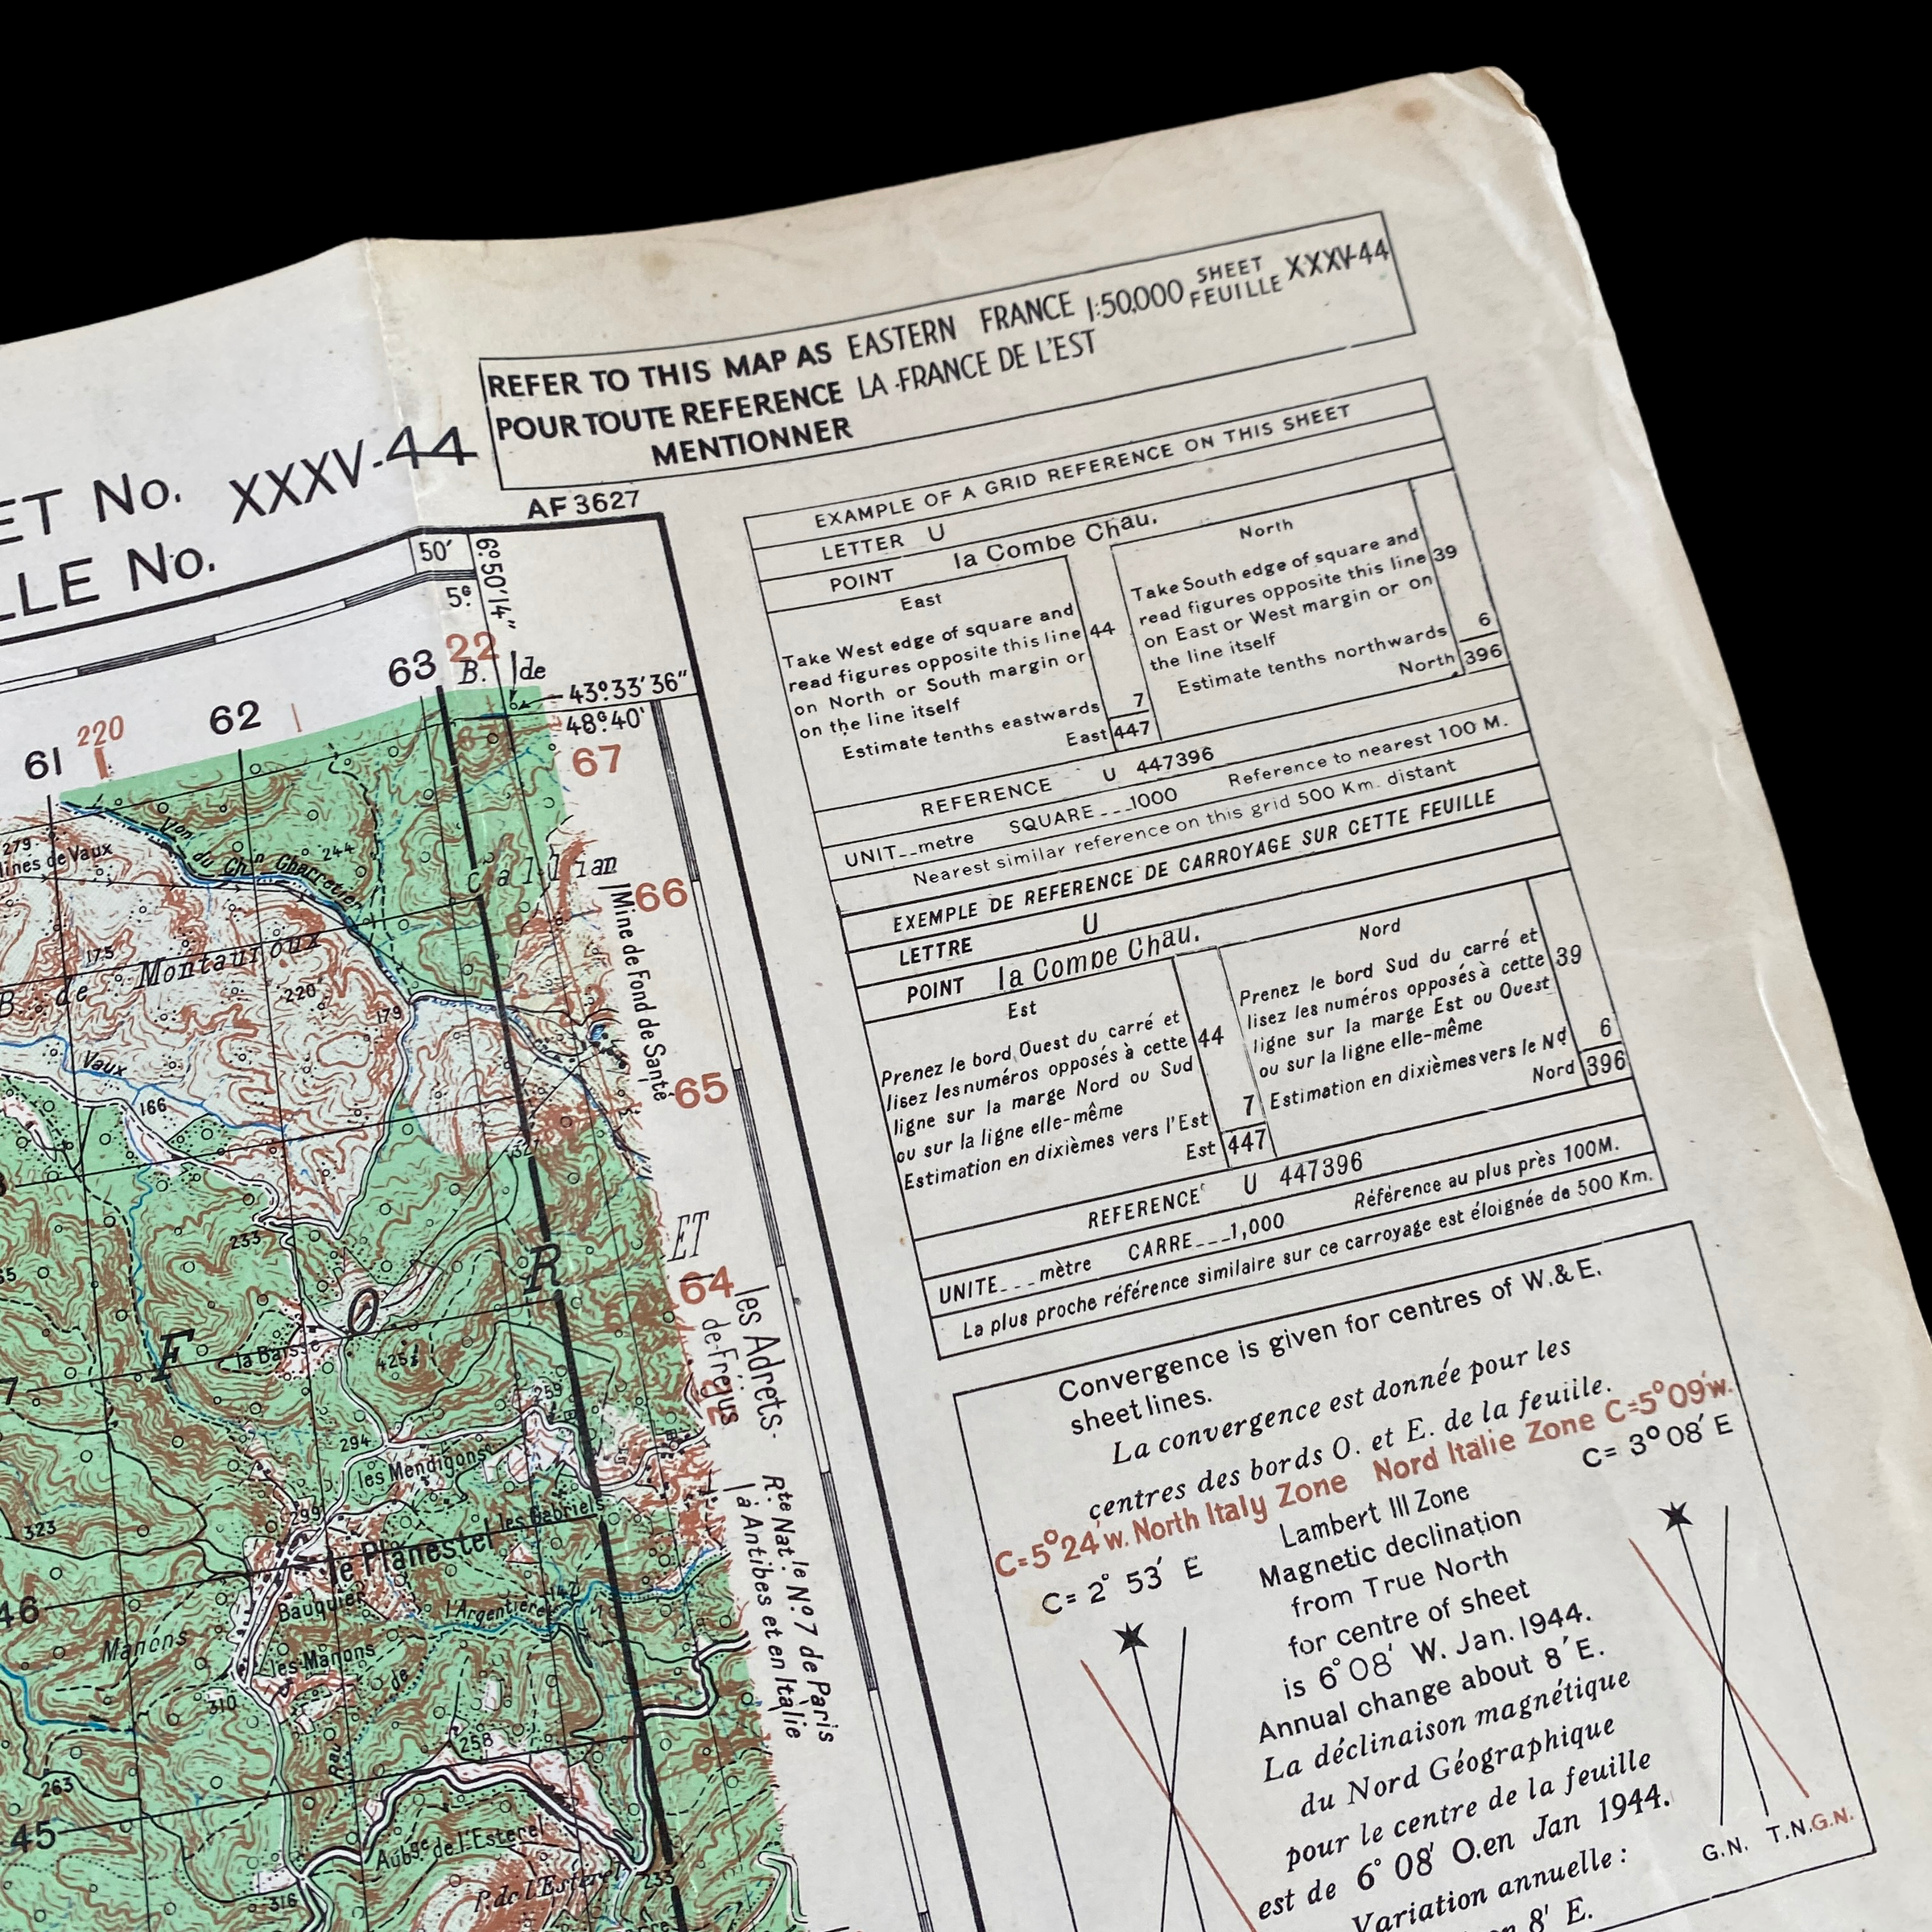 REFER TO THIS MAP AS EASTERN FRANCE 1:50,000 SHEET FEUILLE XXXV-44
POUR TOUTE REFERENCE LA FRANCE DE L'EST
MENTIONNER
ET No. XXXV-44
LLE No.
AF 3627
50'
5ᵍ
6°50'14"
61
220
62
63
22
B. de
43°33'36"
48ᵍ40'
67
66
65
64
EXAMPLE OF A GRID REFERENCE ON THIS SHEET
LETTER U
POINT la Combe Chau.
East
Take West edge of square and
read figures opposite this line 44
on North or South margin or
on the line itself
Estimate tenths eastwards 7
East 447
North
Take South edge of square and
read figures opposite this line 39
on East or West margin or on
the line itself
Estimate tenths northwards 6
North 396
REFERENCE U 447396
UNIT__metre SQUARE___1000 Reference to nearest 100 M.
Nearest similar reference on this grid 500 Km. distant
EXEMPLE DE REFERENCE DE CARROYAGE SUR CETTE FEUILLE
LETTRE U
POINT la Combe Chau.
Est
Prenez le bord Ouest du carré et
lisez les numéros opposés à cette 44
ligne sur la marge Nord ou Sud
ou sur la ligne elle-même
Estimation en dixièmes vers l'Est 7
Est 447
Nord
Prenez le bord Sud du carré et
lisez les numéros opposés à cette 39
ligne sur la marge Est ou Ouest
ou sur la ligne elle-même
Estimation en dixièmes vers le Nᵈ 6
Nord 396
REFERENCE U 447396
UNITE___mètre CARRE___1,000 Référence au plus près 100M.
La plus proche référence similaire sur ce carroyage est éloignée de 500 Km.
Convergence is given for centres of W.& E.
sheet lines.
La convergence est donnée pour les
centres des bords O. et E. de la feuille.
C=5°24'w. North Italy Zone Nord Italie Zone C=5°09'w.
C= 2° 53' E
Lambert III Zone
C= 3°08' E
Magnetic declination
from True North
for centre of sheet
is 6°08' W. Jan. 1944.
Annual change about 8' E.
La déclinaison magnétique
du Nord Géographique
pour le centre de la feuille
est de 6° 08' O.en Jan 1944.
Variation annuelle :
8' E.
G.N. T.N. G.N.
279
Von du Chⁿ Charretier
244
Callian
Mine de Fond de Santé
175
B. de Montauroux
220
179
Vaux
166
233
F O R
ET
la Baisse
425
259
294
les Mendigons
les Adrets-
de-Fréjus
299
323
les Gabriels
le Planestel
Bauquier
l'Argentière
46
Manons
les Manons
310
258
263
45
Aubᵍᵉ de l'Esterel
P. de l'Esterel
316
233
Rᵗᵉ Natˡᵉ Nº 7 de Paris
à Antibes et en Italie